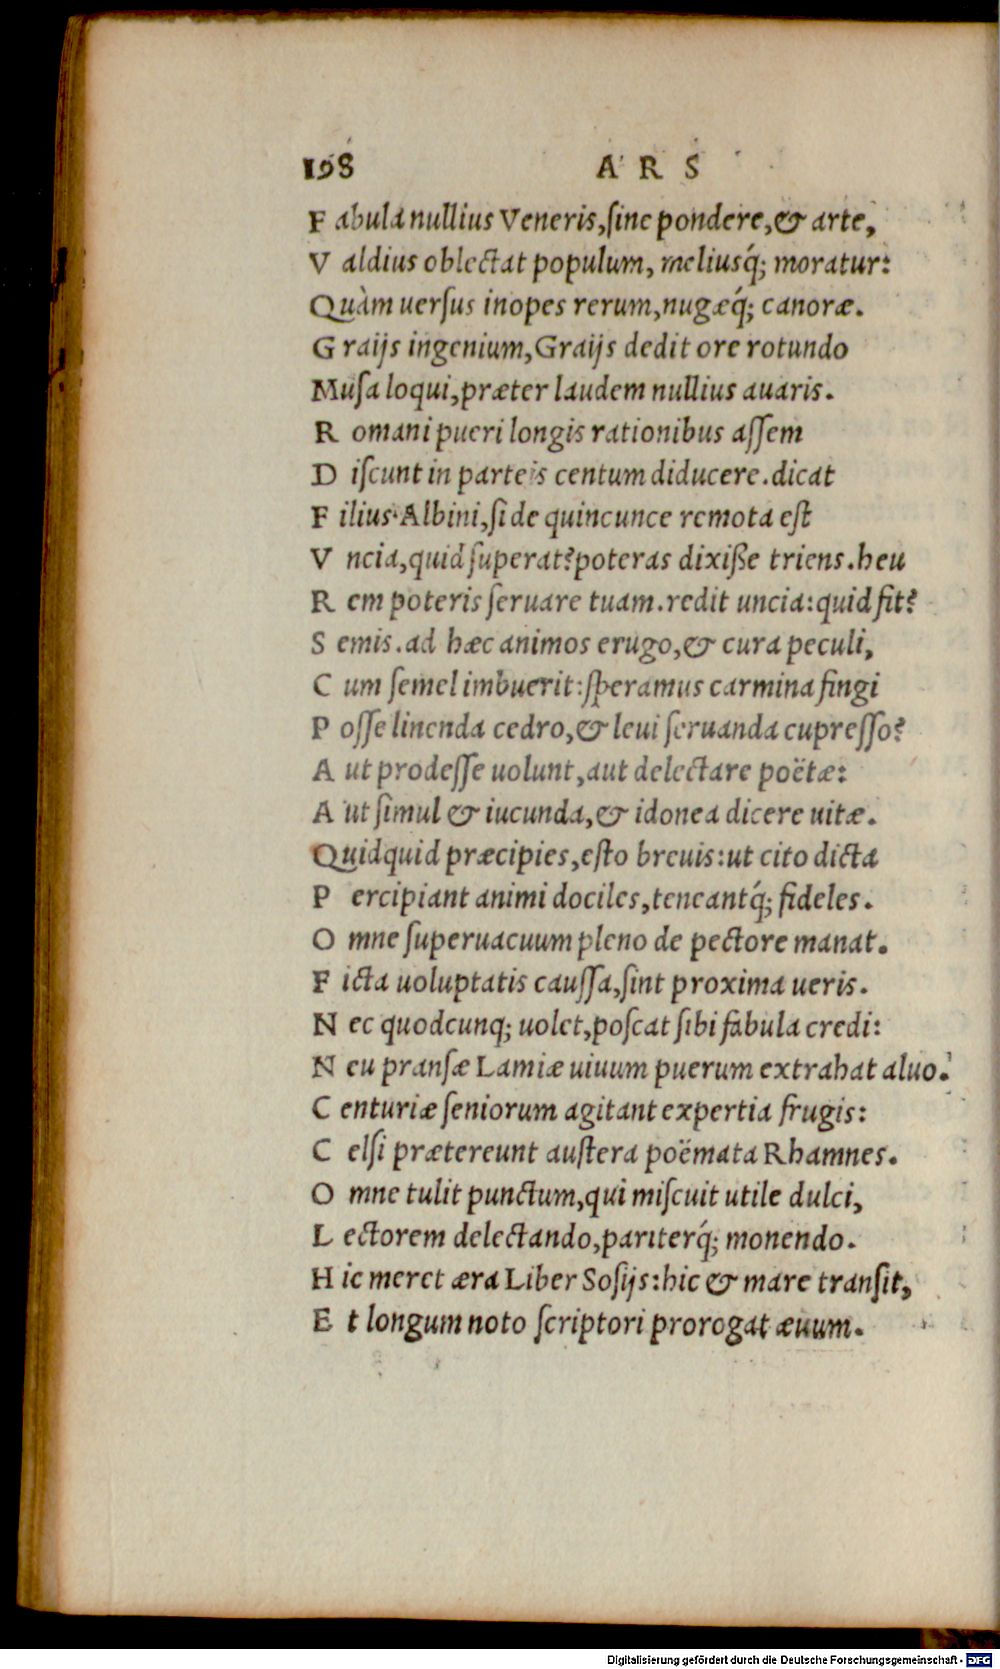 198 ARS
Fabula nullius Veneris, ſine pondere, & arte,
Valdius oblectat populum, meliusq́; moratur:
Quàm uerſus inopes rerum, nugæq́; canoræ.
Graijs ingenium, Graijs dedit ore rotundo
Muſa loqui, præter laudem nullius auaris.
Romani pueri longis rationibus aſſem
Diſcunt in parteis centum diducere. dicat
Filius Albini, ſi de quincunce remota eſt
Vncia, quid ſuperat? poteras dixiße triens. heu
Rem poteris ſeruare tuam. redit uncia: quid fit?
Semis. ad hæc animos erugo, & cura peculi,
Cum ſemel imbuerit: ſperamus carmina fingi
Poſſe linenda cedro, & leui ſeruanda cupreſſo?
Aut prodeſſe uolunt, aut delectare poëtæ:
Aut ſimul & iucunda, & idonea dicere uitæ.
Quidquid præcipies, eſto breuis: ut cito dicta
Percipiant animi dociles, teneantq́; fideles.
Omne ſuperuacuum pleno de pectore manat.
Ficta uoluptatis cauſſa, ſint proxima ueris.
Nec quodcunq; uolet, poſcat ſibi fabula credi:
Neu pranſæ Lamiæ uiuum puerum extrahat aluo.
Centuriæ ſeniorum agitant expertia frugis:
Celſi prætereunt auſtera poëmata Rhamnes.
Omne tulit punctum, qui miſcuit utile dulci,
Lectorem delectando, pariterq́; monendo.
Hic meret æra Liber Soſijs: hic & mare tranſit,
Et longum noto ſcriptori prorogat æuum.
Digitalisierung gefördert durch die Deutsche Forschungsgemeinschaft - DFG